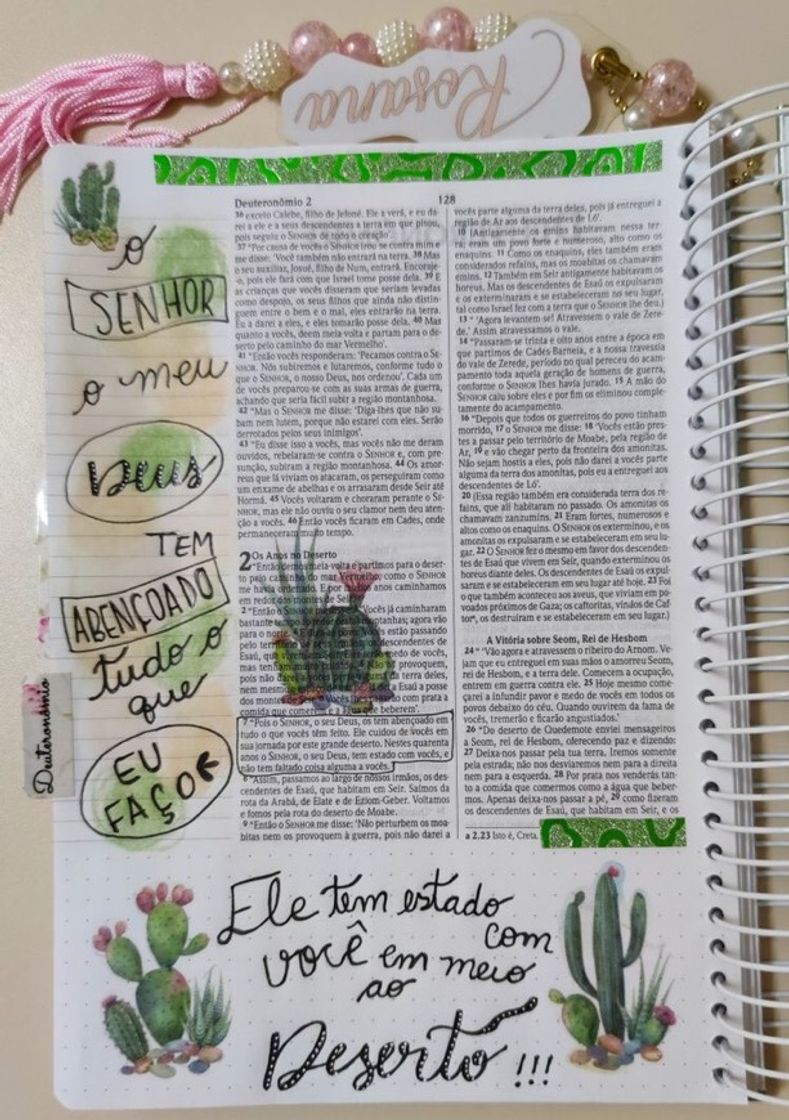 Rosana
Deuteronômio 2
128
36 exceto Calebe, filho de Jefoné. Ele a verá, e eu da-
rei a ele e a seus descendentes a terra em que pisou,
pois seguiu o SENHOR de todo o coração'.
37 "Por causa de vocês o SENHOR irou-se contra mim e
me disse: 'Você também não entrará na terra. 38 Mas
o seu auxiliar, Josué, filho de Num, entrará. Encoraje-
-o, pois ele fará com que Israel tome posse dela. 39 E
as crianças que vocês disseram que seriam levadas
como despojo, os seus filhos que ainda não distin-
guem entre o bem e o mal, eles entrarão na terra.
Eu a darei a eles, e eles tomarão posse dela. 40 Mas
quanto a vocês, deem meia-volta e partam para o de-
serto pelo caminho do mar Vermelho'.
41 "Então vocês responderam: 'Pecamos contra o SE-
NHOR. Nós subiremos e lutaremos, conforme tudo o
que o SENHOR, o nosso Deus, nos ordenou'. Cada um
de vocês preparou-se com as suas armas de guerra,
achando que seria fácil subir a região montanhosa.
42 "Mas o SENHOR me disse: 'Diga-lhes que não su-
bam nem lutem, porque não estarei com eles. Serão
derrotados pelos seus inimigos'.
43 "Eu disse isso a vocês, mas vocês não me deram
ouvidos, rebelaram-se contra o SENHOR e, com pre-
sunção, subiram a região montanhosa. 44 Os amor-
reus que lá viviam os atacaram, os perseguiram como
um enxame de abelhas e os arrasaram desde Seir até
Hormá. 45 Vocês voltaram e choraram perante o SE-
NHOR, mas ele não ouviu o seu clamor nem deu aten-
ção a vocês. 46 Então vocês ficaram em Cades, onde
permaneceram muito tempo.
Os Anos no Deserto
2 "Então demos meia-volta e partimos para o deser-
to pelo caminho do mar Vermelho, como o SENHOR
me havia ordenado. E por anos caminhamos
em redor dos montes de Seir.
2 "Então o SENHOR Vocês já caminharam
bastante montanhas; agora vão
para o norte. estão passando
pelo território descendentes de
Esaú, que medo de vocês,
mas tenham provoquem,
pois não darei terra deles,
nem mesmo Esaú a posse
dos montes com prata a
comida que comerem e a água que beberem'.
7 "Pois o SENHOR, o seu Deus, os tem abençoado em
tudo o que vocês têm feito. Ele cuidou de vocês em
sua jornada por este grande deserto. Nestes quarenta
anos o SENHOR, o seu Deus, tem estado com vocês, e
não tem faltado coisa alguma a vocês.
8 "Assim, passamos ao largo de nossos irmãos, os des-
cendentes de Esaú, que habitam em Seir. Saímos da
rota da Arabá, de Elate e de Eziom-Geber. Voltamos
e fomos pela rota do deserto de Moabe.
9 "Então o SENHOR me disse: 'Não perturbem os moa-
bitas nem os provoquem à guerra, pois não darei a
vocês parte alguma da terra deles, pois já entreguei a
região de Ar aos descendentes de Ló'.
10 (Antigamente os emins habitavam nessa ter-
ra; eram um povo forte e numeroso, alto como os
enaquins. 11 Como os enaquins, eles também eram
considerados refains, mas os moabitas os chamavam
emins. 12 Também em Seir antigamente habitavam os
horeus. Mas os descendentes de Esaú os expulsaram
e os exterminaram e se estabeleceram no seu lugar,
tal como Israel fez com a terra que o SENHOR lhe deu.)
13 " 'Agora levantem-se! Atravessem o vale de Zere-
de.' Assim atravessamos o vale.
14 "Passaram-se trinta e oito anos entre a época em
que partimos de Cades-Barneia, e a nossa travessia
do vale de Zerede, período no qual pereceu do acam-
pamento toda aquela geração de homens de guerra,
conforme o SENHOR lhes havia jurado. 15 A mão do
SENHOR caiu sobre eles e por fim os eliminou comple-
tamente do acampamento.
16 "Depois que todos os guerreiros do povo tinham
morrido, 17 o SENHOR me disse: 18 'Vocês estão pres-
tes a passar pelo território de Moabe, pela região de
Ar, 19 e vão chegar perto da fronteira dos amonitas.
Não sejam hostis a eles, pois não darei a vocês parte
alguma da terra dos amonitas, pois eu a entreguei aos
descendentes de Ló'.
20 (Essa região também era considerada terra dos re-
fains, que ali habitaram no passado. Os amonitas os
chamavam zanzumins. 21 Eram fortes, numerosos e
altos como os enaquins. O SENHOR os exterminou, e os
amonitas os expulsaram e se estabeleceram em seu lu-
gar. 22 O SENHOR fez o mesmo em favor dos descenden-
tes de Esaú que vivem em Seir, quando exterminou os
horeus diante deles. Os descendentes de Esaú os expul-
saram e se estabeleceram em seu lugar até hoje. 23 Foi
o que também aconteceu aos aveus, que viviam em po-
voados próximos de Gaza; os caftoritas, vindos de Caf-
torª, os destruíram e se estabeleceram em seu lugar.)
A Vitória sobre Seom, Rei de Hesbom
24 " 'Vão agora e atravessem o ribeiro do Arnom. Ve-
jam que eu entreguei em suas mãos o amorreu Seom,
rei de Hesbom, e a terra dele. Comecem a ocupação,
entrem em guerra contra ele. 25 Hoje mesmo come-
çarei a infundir pavor e medo de vocês em todos os
povos debaixo do céu. Quando ouvirem da fama de
vocês, tremerão e ficarão angustiados.'
26 "Do deserto de Quedemote enviei mensageiros
a Seom, rei de Hesbom, oferecendo paz e dizendo:
27 Deixa-nos passar pela tua terra. Iremos somente
pela estrada; não nos desviaremos nem para a direita
nem para a esquerda. 28 Por prata nos venderás tan-
to a comida que comermos como a água que beber-
mos. Apenas deixa-nos passar a pé, 29 como fizeram
os descendentes de Esaú, que habitam em Seir, e os
a 2.23 Isto é, Creta.
o
SENHOR
o meu
Deus
TEM
ABENÇOADO
tudo o
que
EU
FAÇO
Deuteronômio
Ele tem estado
com
você em meio
ao
Deserto !!!